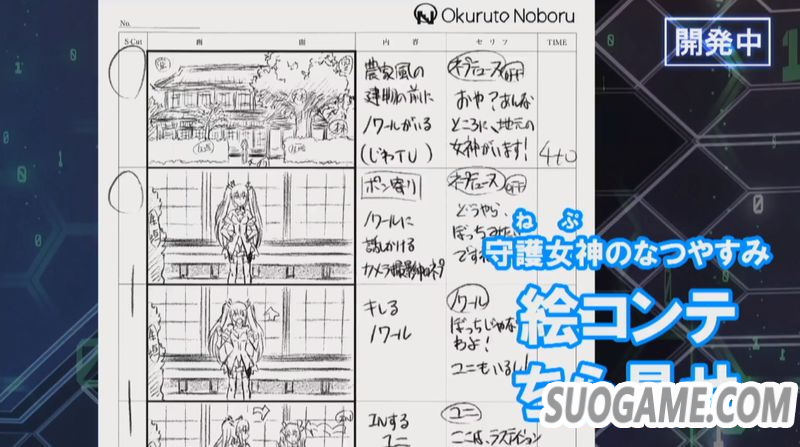 No.
Okuruto Noboru
開発中
S-Cut
画
面
内 容
セリフ
TIME
農家風の
建物の前に
ノワールがいる
(じわTU)
ネプテューヌ OFF
おや?あんな
ところに、地元の
女神がいます!
4+0
ポン寄り
ノワールに
話しかける
カメラ撮影中のネプ
ネプテューヌ OFF
どうやら
ぼっちみたい
ですね
キレる
ノワール
ノワール
ぼっちじゃな
わよ!
ユニもいるし!
INする
ユニ
ユニ
ここは、ラステイション
IN
ねぷ
守護女神のなつやすみ
絵コンテ
ちら見せ
SUOGAME.COM